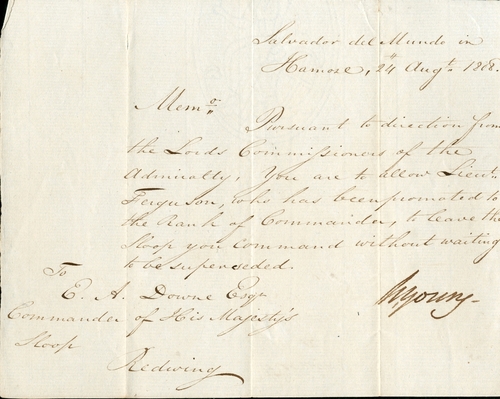 Salvador del Mundo in
Hamoze, 24 Augt. 1808.
Memo.
Pursuant to direction from
the Lords Commissioners of the
Admiralty, You are to allow Lieut.
Ferguson, who has been promoted to
the Rank of Commander, to leave the
Sloop you command without waiting
to be superseded.
W Young
To
E. A. Downe Esqr
Commander of His Majesty's
Sloop
Redwing